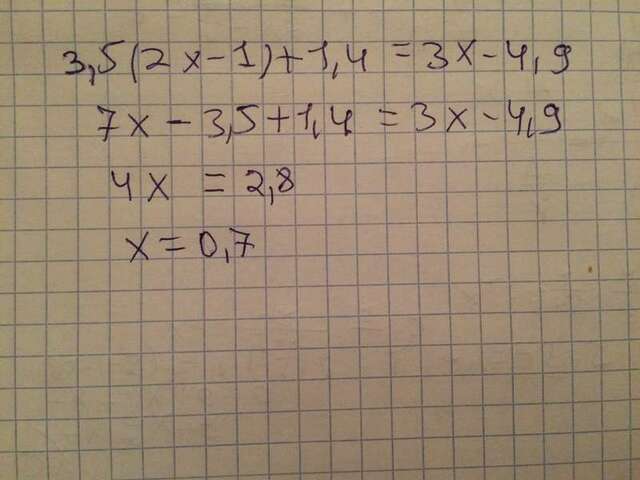 3,5(2x-1)+1,4 = 3x-4,9
7x-3,5+1,4 = 3x-4,9
4x = 2,8
x = 0,7